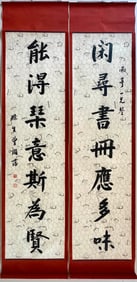 閑尋書冊應多味
能得琹意斯為賢